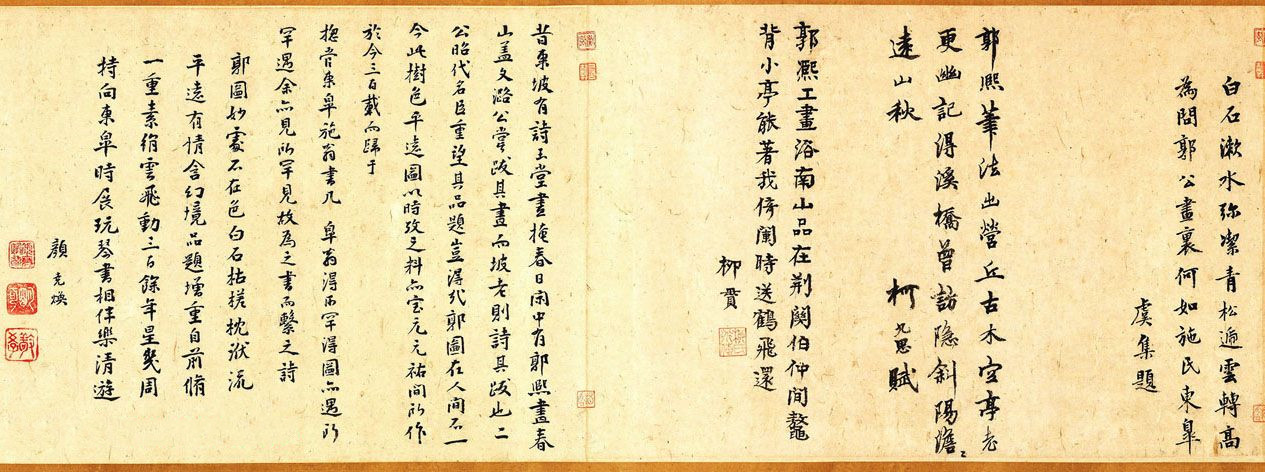 白石漱水弥潔青松遍雲轉高
為問郭公畫裏何如施民東皐
虞集題
郭熈筆法出營丘古木空亭老
更幽記得溪橋曾訪隐斜陽澹〻
遠山秋
柯九思賦
郭熈工畫浴南山品在荆関伯仲間鼇
背小亭能著我倚闌時送鶴飛還
柳貫
昔東坡有詩玉堂晝掩春日閑中有郭熙畫春
山盖文潞公嘗跋其畫而坡老則詩其跋也二
公昭代名臣重望其品題豈得代郭圖在人間不一
今此樹色平遠圖以時攷之料亦宝元元祐間所作
於今三百載而歸于
東皐施翁書几
皐翁得所罕得圖亦遇所
罕遇余亦見所罕見故為之書而繫之詩
郭圖妙處不在色白石枯槎枕漱流
平遠有情含幻境品題增重自前脩
一重素絹雲飛動三百餘年星幾周
持向東皐時展玩琴書相伴樂清遊
顔堯煥